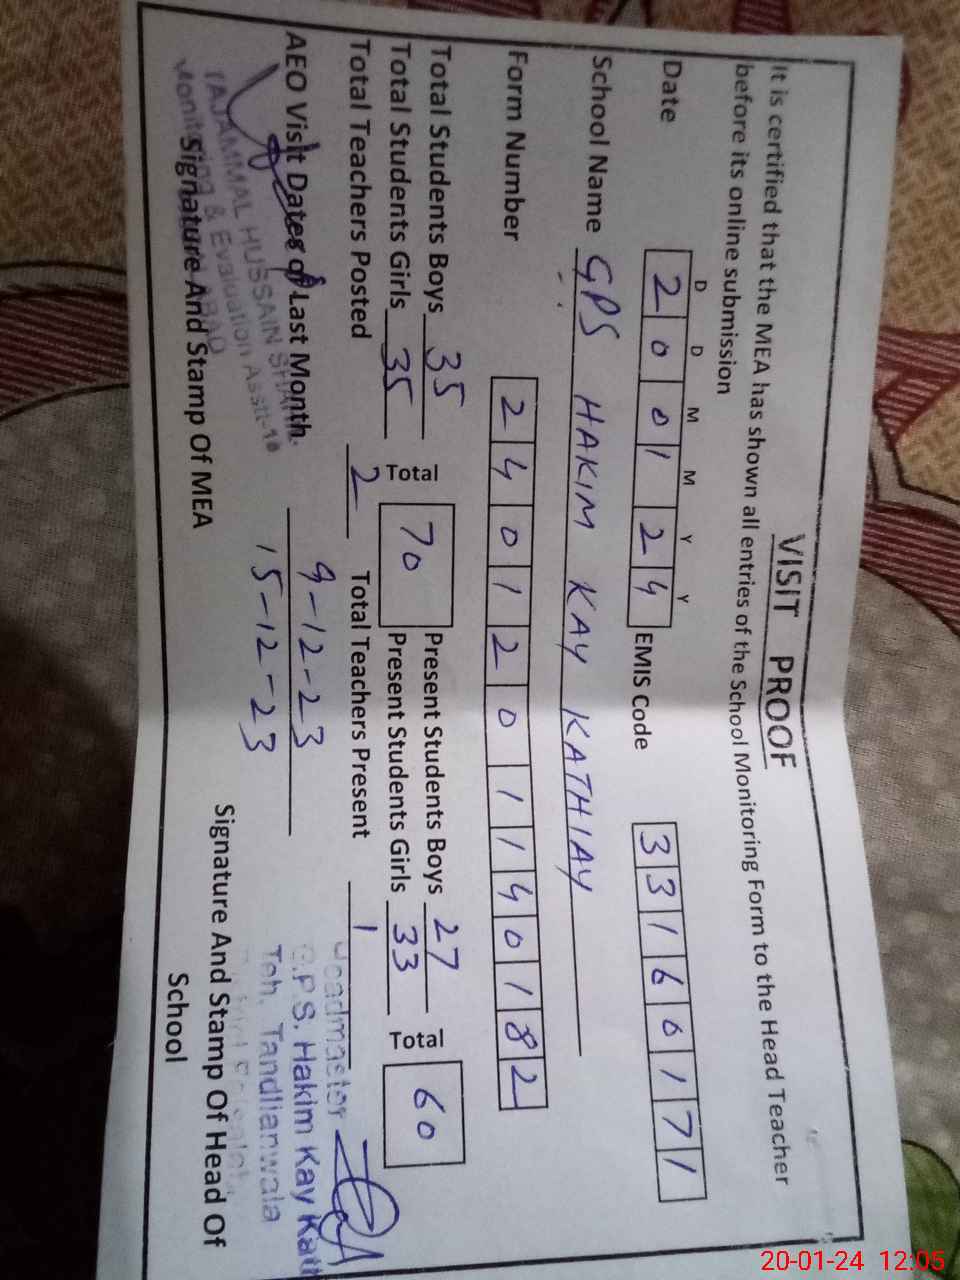 VISIT PROOF
It is certified that the MEA has shown all entries of the School Monitoring Form to the Head Teacher
before its online submission
D D M M Y Y
Date 2 0 0 1 2 4 EMIS Code 3 3 1 6 0 1 7 1
School Name GPS HAKIM KAY KATHIAY
Form Number 2 4 0 1 2 0 1 1 4 0 1 8 2
Total Students Boys 35 Total 70 Present Students Boys 27 Total 60
Total Students Girls 35 Present Students Girls 33
Total Teachers Posted 2 Total Teachers Present 1
AEO Visit Dates of Last Month 9-12-23
15-12-23
TAJAMMAL HUSSAIN SHAH
Monitoring & Evaluation Asstt-18
Signature And Stamp Of MEA
Headmaster
G.P.S. Hakim Kay Kath
Teh. Tandlianwala
Signature And Stamp Of Head Of
School
20-01-24 12:05